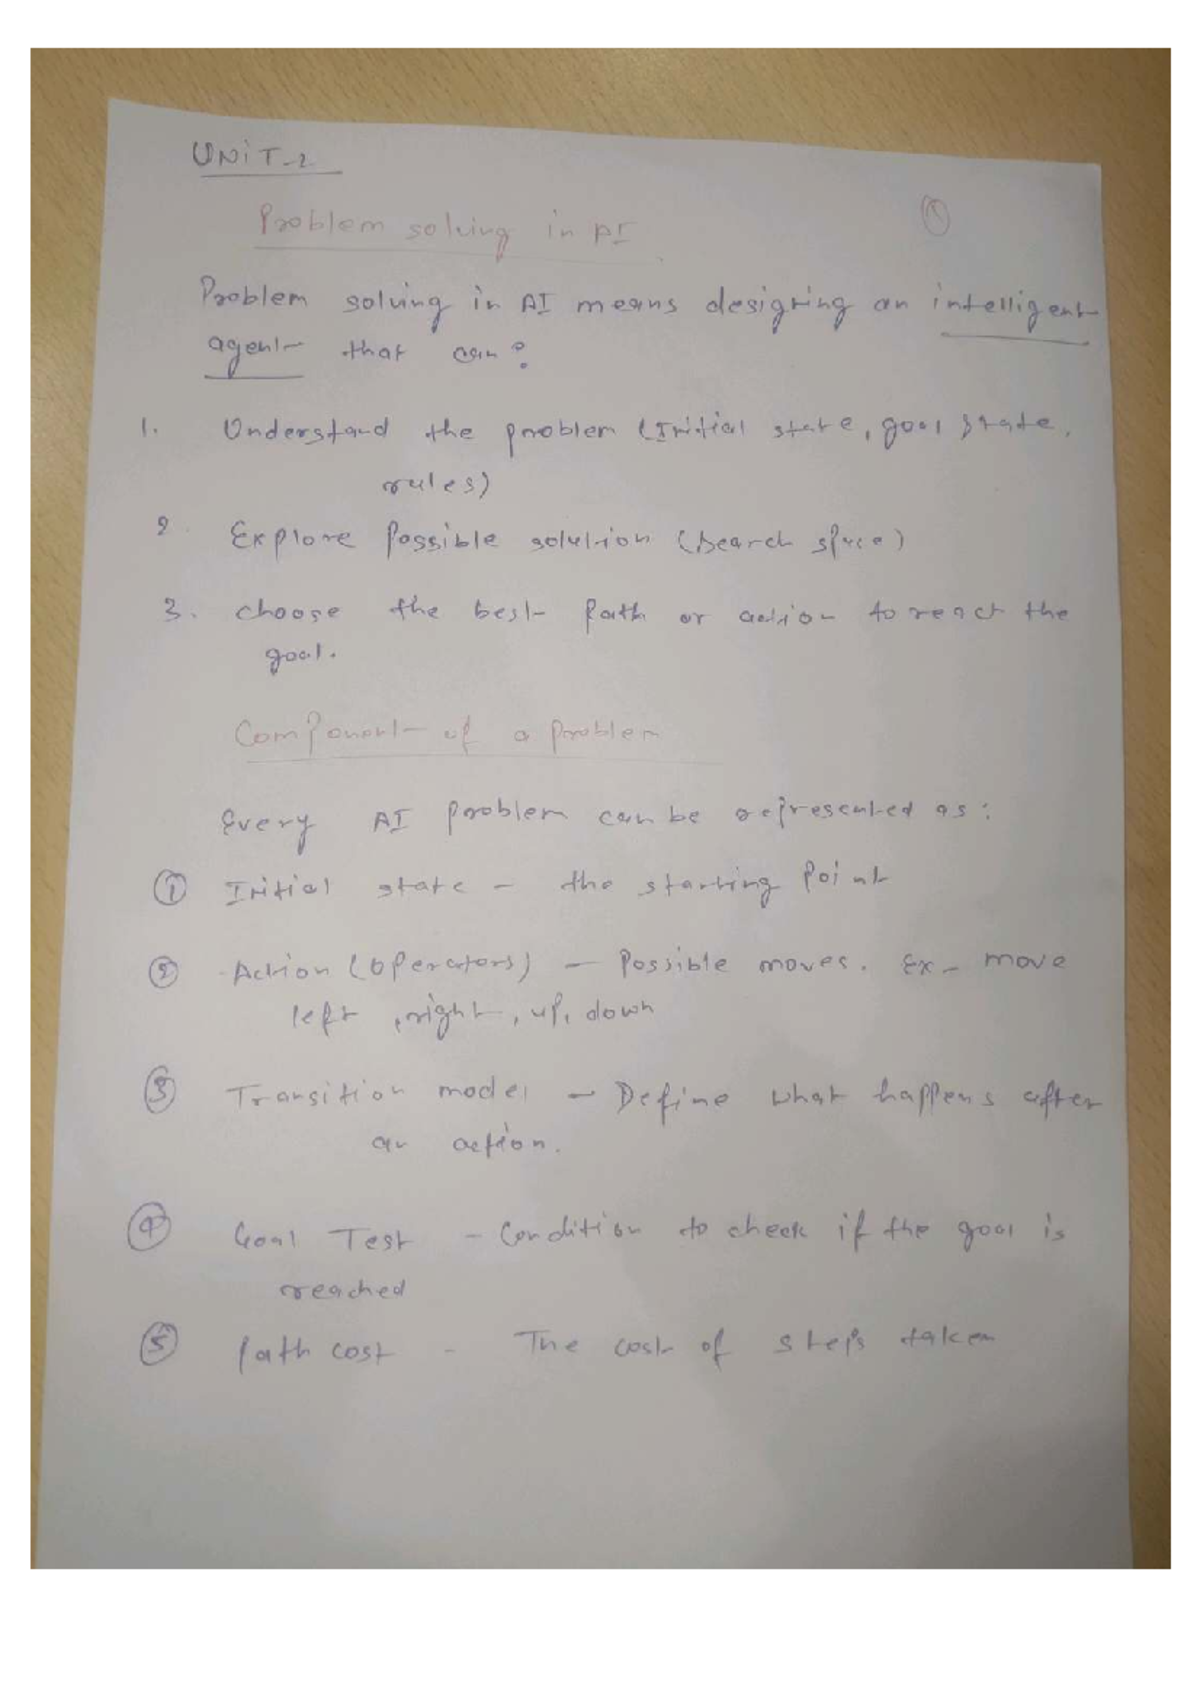 UNIT-2
①
Problem solving in AI
Problem solving in AI means designing an intelligent
agent that can:
1. Understand the problem (Initial state, goal state,
rules)
2. Explore Possible solution (search space)
3. choose the best path or action to reach the
goal.
Component of a problem
Every AI problem can be represented as:
① Initial state - the starting point
② Action (operators) - Possible moves. Ex- move
left, right, up, down
③ Transition model - Define what happens after
an action.
④ Goal Test - Condition to check if the goal is
reached
⑤ Path cost - The cost of steps taken